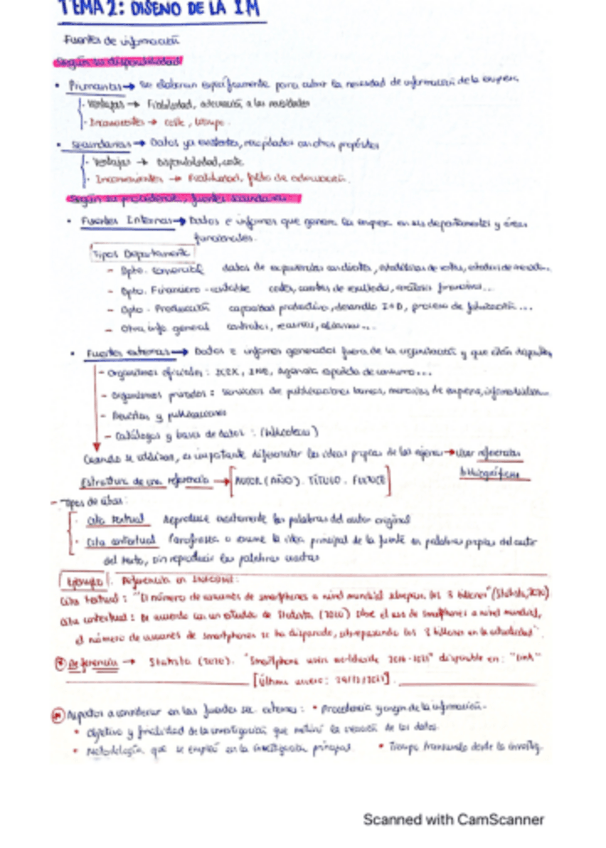 TEMA 2: DISEÑO DE LA IM
Fuentes de información
Según su disponibilidad
• Primarias → Se elaboran específicamente para cubrir la necesidad de información de la empresa.
- Ventajas → Fiabilidad, adecuación a las necesidades
- Inconvenientes → coste, tiempo.
• Secundarias → Datos ya existentes, recopilados con otros propósitos
- Ventajas → Disponibilidad, coste
- Inconvenientes → Fiabilidad, falta de adecuación.
Según su procedencia, fuentes secundarias
• Fuentes Internas → Datos e informes que genera la empresa en sus departamentos y áreas
funcionales.
Tipos Departamento
- Dpto. Comercial datos de
- Dpto. Financiero-contable costes, cuentas de resultado, análisis financiero...
- Dpto. Producción capacidad productiva, desarrollo I+D, proceso de fabricación...
- Otra info general contratos, recursos,
• Fuentes externas → Datos e informes generados fuera de la organización y que están
- Organismos oficiales: INE, Agencia española de consumo...
- Organismos privados: servicios de publicaciones bancos, memorias de empresa,
- Revistas y publicaciones
- Catálogos y bases de datos: (bibliotecas)
Cuando se utilizan, es importante diferenciar las ideas propias de las ajenas → Usar referencias
bibliográficas
Estructura de una referencia → AUTOR (AÑO). TÍTULO. FUENTE
- Tipos de citas:
Cita textual Reproduce exactamente las palabras del autor original
Cita contextual Parafrasea o resume la idea principal de la fuente en palabras propias del autor
del texto, sin reproducir las palabras exactas
Ejemplo: Referencia en
Cita textual: "El número de usuarios de smartphones a nivel mundial sobrepasa los 3 billones" (Statista, 2020)
Cita contextual: De acuerdo con un estudio de Statista (2020) sobre el uso de smartphones a nivel mundial,
el número de usuarios de smartphones se ha disparado, sobrepasando los 3 billones en la actualidad".
Referencia → Statista (2020). "Smartphone users worldwide 2016-2021" disponible en: "Link"
[Último acceso:
Aspectos a considerar en las fuentes sec. externas: • Procedencia y origen de la información.
• Objetivo y finalidad de la investigación que motivó la creación de los datos.
• Metodología que se empleó en la investigación principal. • Tiempo transcurrido desde la investig.
Scanned with CamScanner